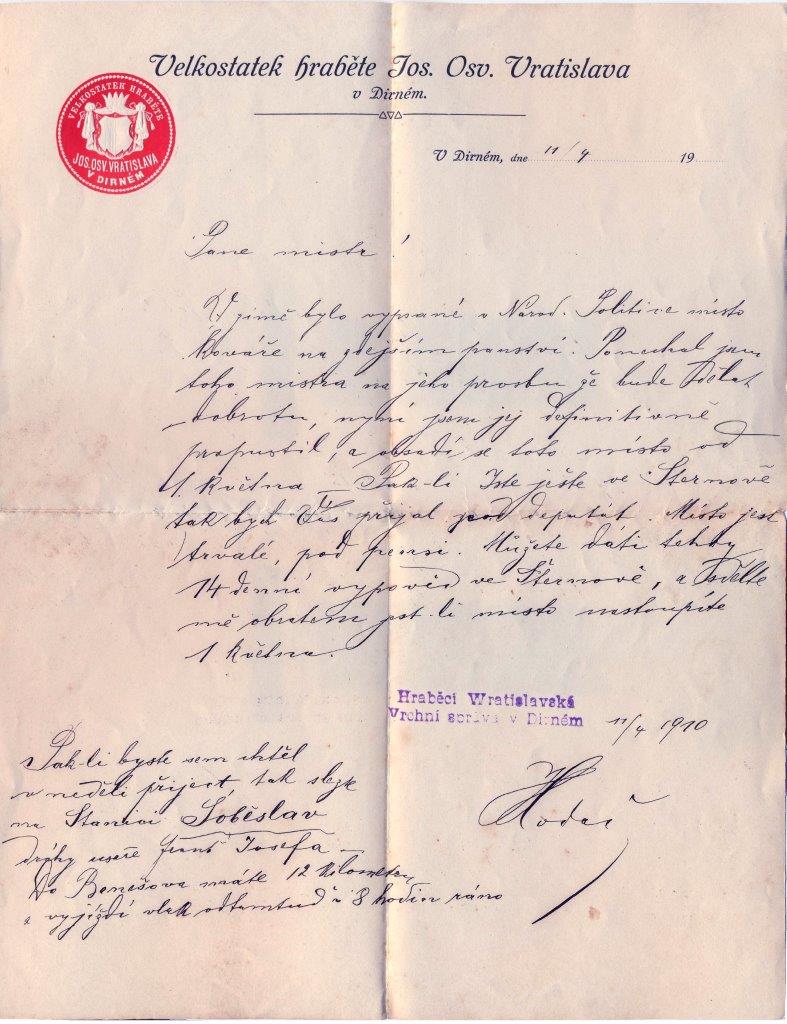 Velkostatek hraběte Jos. Osv. Vratislava
v Dirném.
VELKOSTATEK HRABĚTE
JOS. OSV. VRATISLAVA
V DIRNÉM
V Dirném, dne 11/4 19
Pane mistr!
V zimě bylo vypsané v Národ. Politice místo
kováře na zdejším panství. Ponechal jsem
toho mistra na jeho prosbu že bude dělat
dobrotu, nyní jsem jej definitivně
propustil, a obsadí se toto místo od
1. května – Pak-li Jste ješte ve Šternově
tak bych Vás přijal pod deputát. Místo jest
trvalé, pod pensi. Můžete dáti tehdy
14 denní vypověd ve Šternově, a sdělte
mě obratem jest-li místo nastoupíte
1 května.
Hraběcí Wratislavská
Vrchní správa v Dirném 11/4 1910
Pak-li byste sem chtěl
v neděli přiject tak slezte
na Stanici Soběslav
dráhy císaře Frant Josefa –
Do Benešova máte 12 kilometru
a vyjíždí vlak odtamtud v 8 hodin ráno